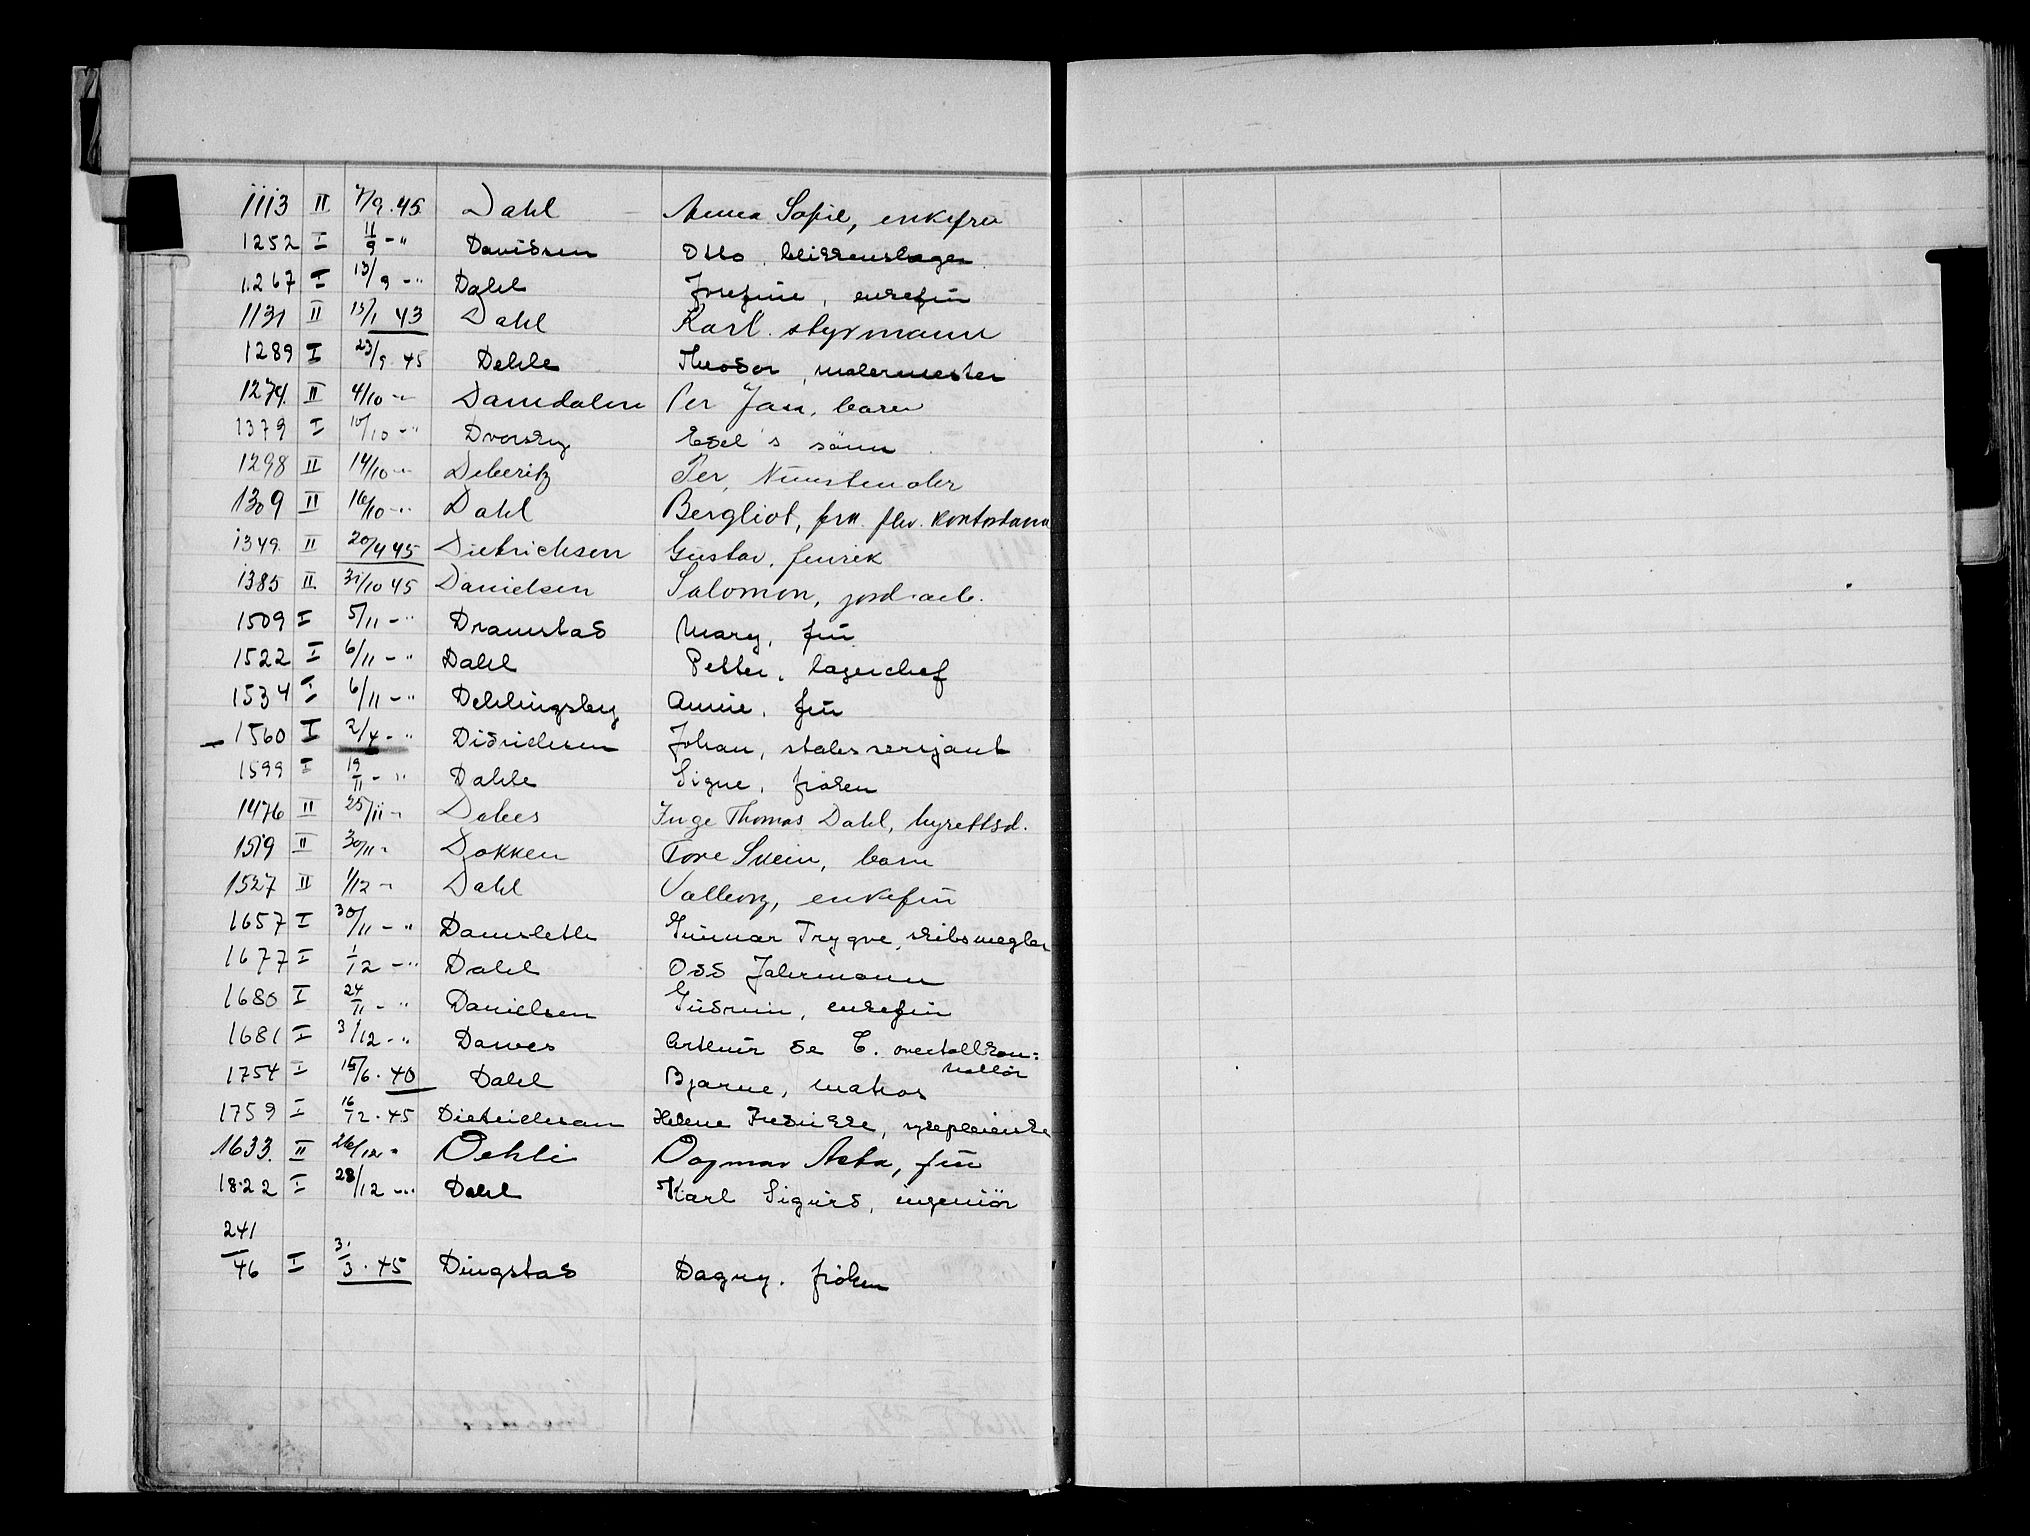 1113 II 7/9.45 Dahl Anna Sofie, enkefru
1252 I 11/9 -" Davidsen Otto. blikkenslager
1267 I 13/9 -" Dahl Josefine, enkefrü
1131 II 15/1 43 Dahl Karl. styrmann
1289 I 23/9.45 Dehle Theodor, malermester
1274. II 4/10 -" Damdalen Per Jan, barn
1379 I 10/10 -" Dvorsky Edel's sönn
1298 II 14/10 -" Deberitz Per, Kunstmaler
1309 II 16/10 -" Dahl Bergliot, fru. fhv.
1349. II 20/4 45 Dietrichsen Güstav. fenrik
1385 II 31/10 45 Danielsen Salomon, jord.arb.
1509 I 5/11 -" Dramstad Mary, frü
1522 I 6/11 -" Dahl Petter, lagerchef
1534 I 6/11 -" Dehlingsby Annie. frü
- 1560 I 2/4 -" Didrichsen Johan, stabssersjant
1599 I 19/11 -" Dahle Signe, fröken
1476 II 25/11 -" Debes Inge Thomas Dahl, byrettsd.
1519 II 30/11 " Dokken Tore Svein, barn
1527 II 1/12 -" Dahl Valborg, enkefrü
1657 I 30/11 -" Damsleth Günnar Trygve, skibsmegler
1677 I 1/12 -" Dahl Odd Jahrmann
1680 I 24/11 -" Danielsen Güdrün, enkefrü
1681 I 3/12 -" Dawes Arthür de C. overtollkon=
trollör
1754 I 15/6.40 Dahl Bjarne, matros
1759 I 16/12.45 Dietrichson Helene Fredrikke, sykepleierske
1633. II 26/12 " Dehli Dagmar Asta, frü
1822 I 28/12 -" Dahl Karl Sigürd, ingeniör
241
/46 I 31/3.45 Dingstad Dagny. fröken